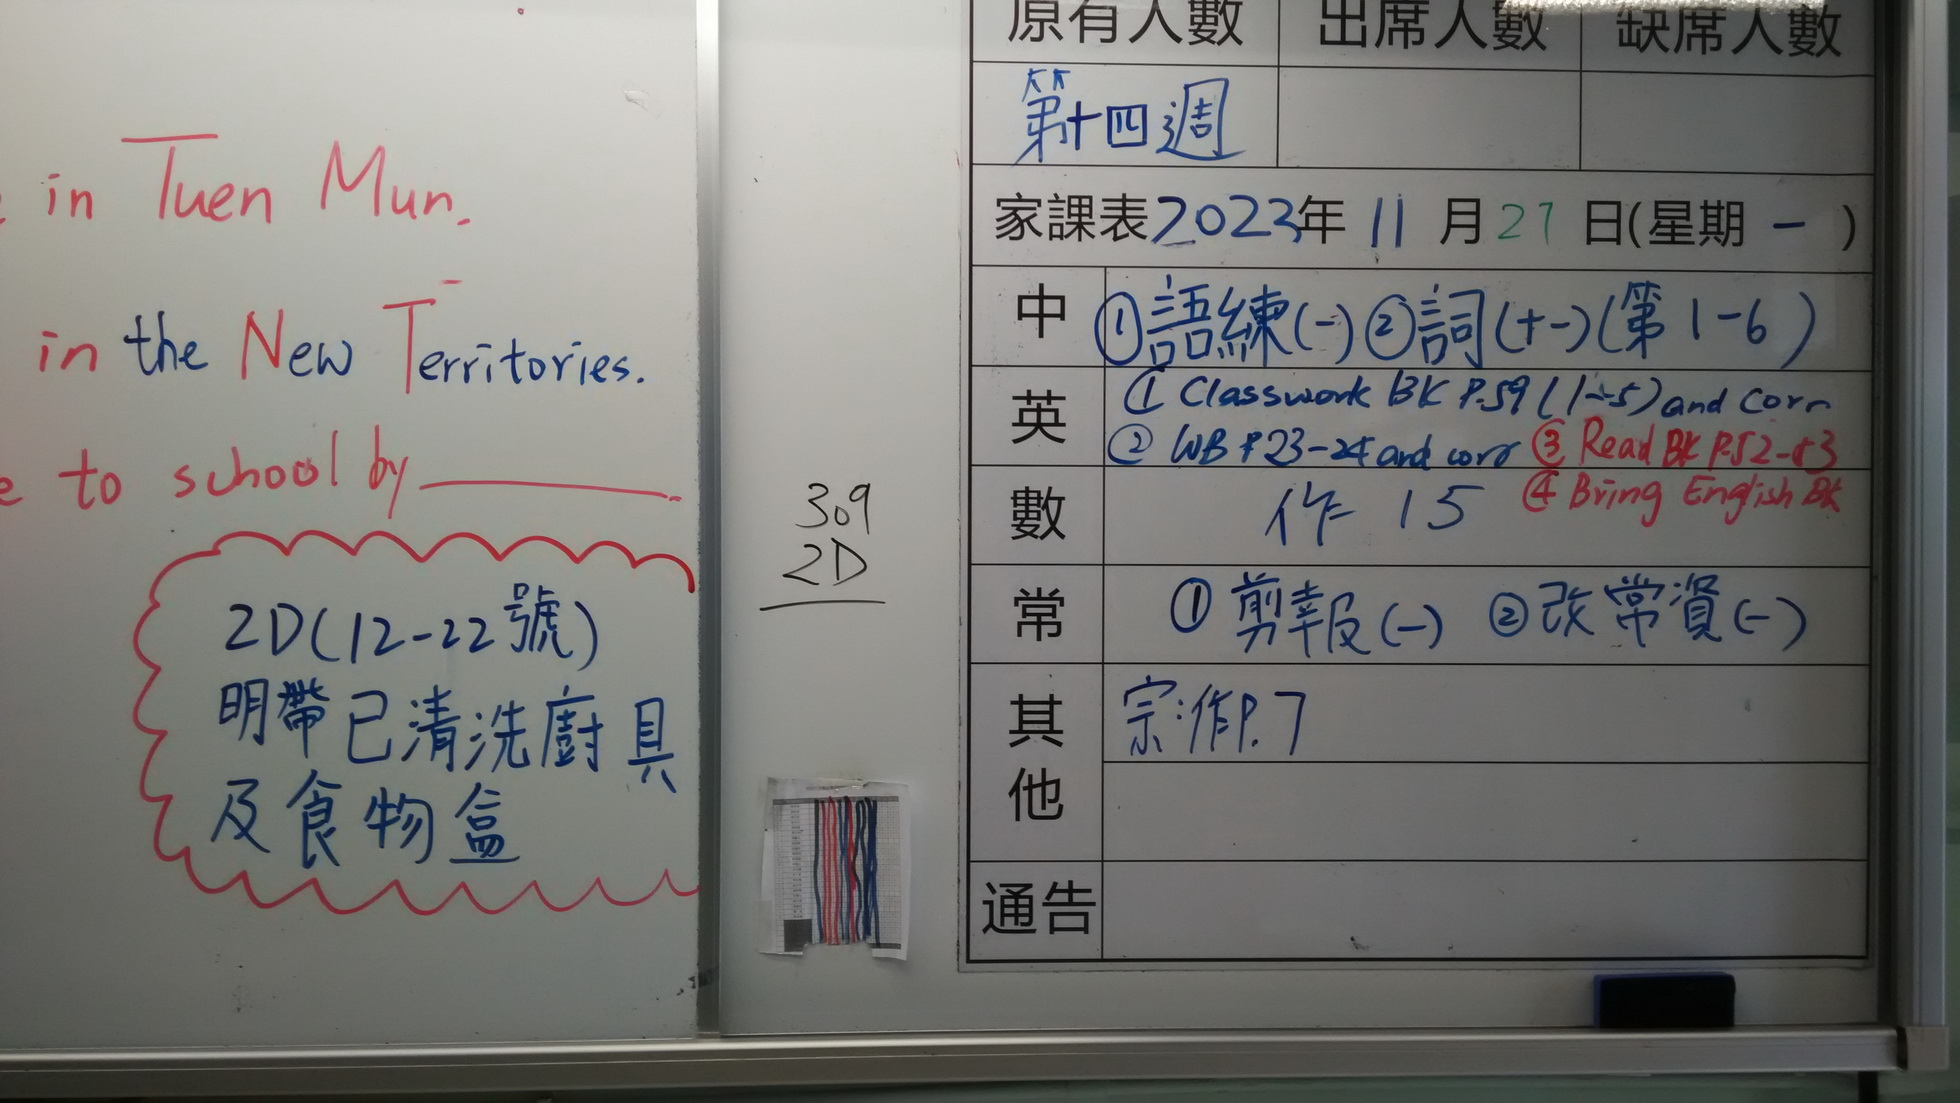 in Tuen Mun.
in the New Territories.
to school by
2D(12-22號)
明帶已清洗廚具
及食物盒
309
2D
原有人數 出席人數 缺席人數
第十四週
家課表2023年 11月27日(星期一)
中 ①語練(一) ②詞(十一)(第1-6)
英 ① Classwork BK P.59 (1-5) and corr
② WB P23-24 and corr ③ Read BK P.52-53
④ Bring English BK
數 作 15
常 ① 剪報(一) ②改常資(一)
其他 宗:作P.7
通告